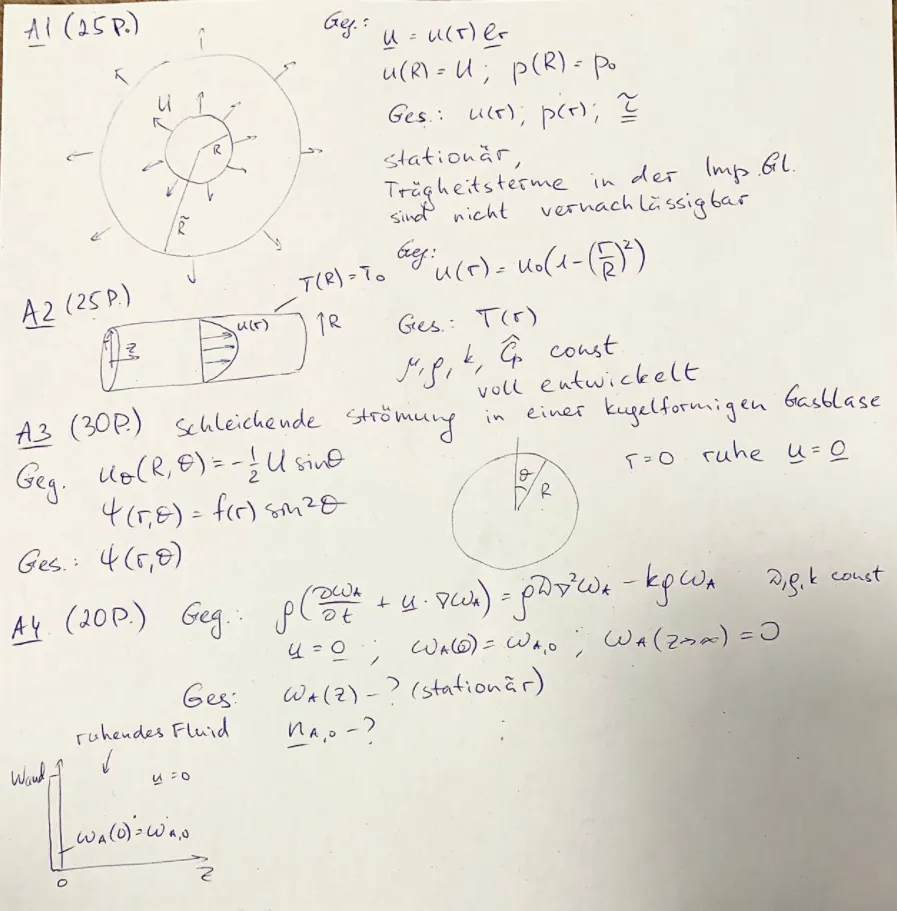 A1 (25P.)
Geg.: u = u(r) e_r
u(R) = U ; p(R) = p₀
U
R
R̃
Ges.: u(r); p(r); τ̃
stationär,
Trägheitsterme in der Imp.Gl.
sind nicht vernachlässigbar
A2 (25P.)
T(R) = T₀
Geg: u(r) = u₀(1-(r/R)²)
z
u(r)
↑R
Ges.: T(r)
μ, ρ, k, Ĉp const
voll entwickelt
A3 (30P.) schleichende Strömung in einer kugelformigen Gasblase
Geg. u_θ(R,θ) = -½ U sinθ
Ψ(r,θ) = f(r) sin²θ
θ
R
r=0 ruhe u = 0
Ges.: Ψ(r,θ)
A4 (20P.) Geg.: ρ(∂ω_A/∂t + u · ∇ω_A) = ρD∇²ω_A - kρω_A D,ρ,k const
u = 0 ; ω_A(0) = ω_A,0 ; ω_A(z→∞) = 0
Ges: ω_A(z) - ? (stationär)
n_A,0 - ?
ruhendes Fluid
Wand
u = 0
ω_A(0) = ω_A,0
0
z